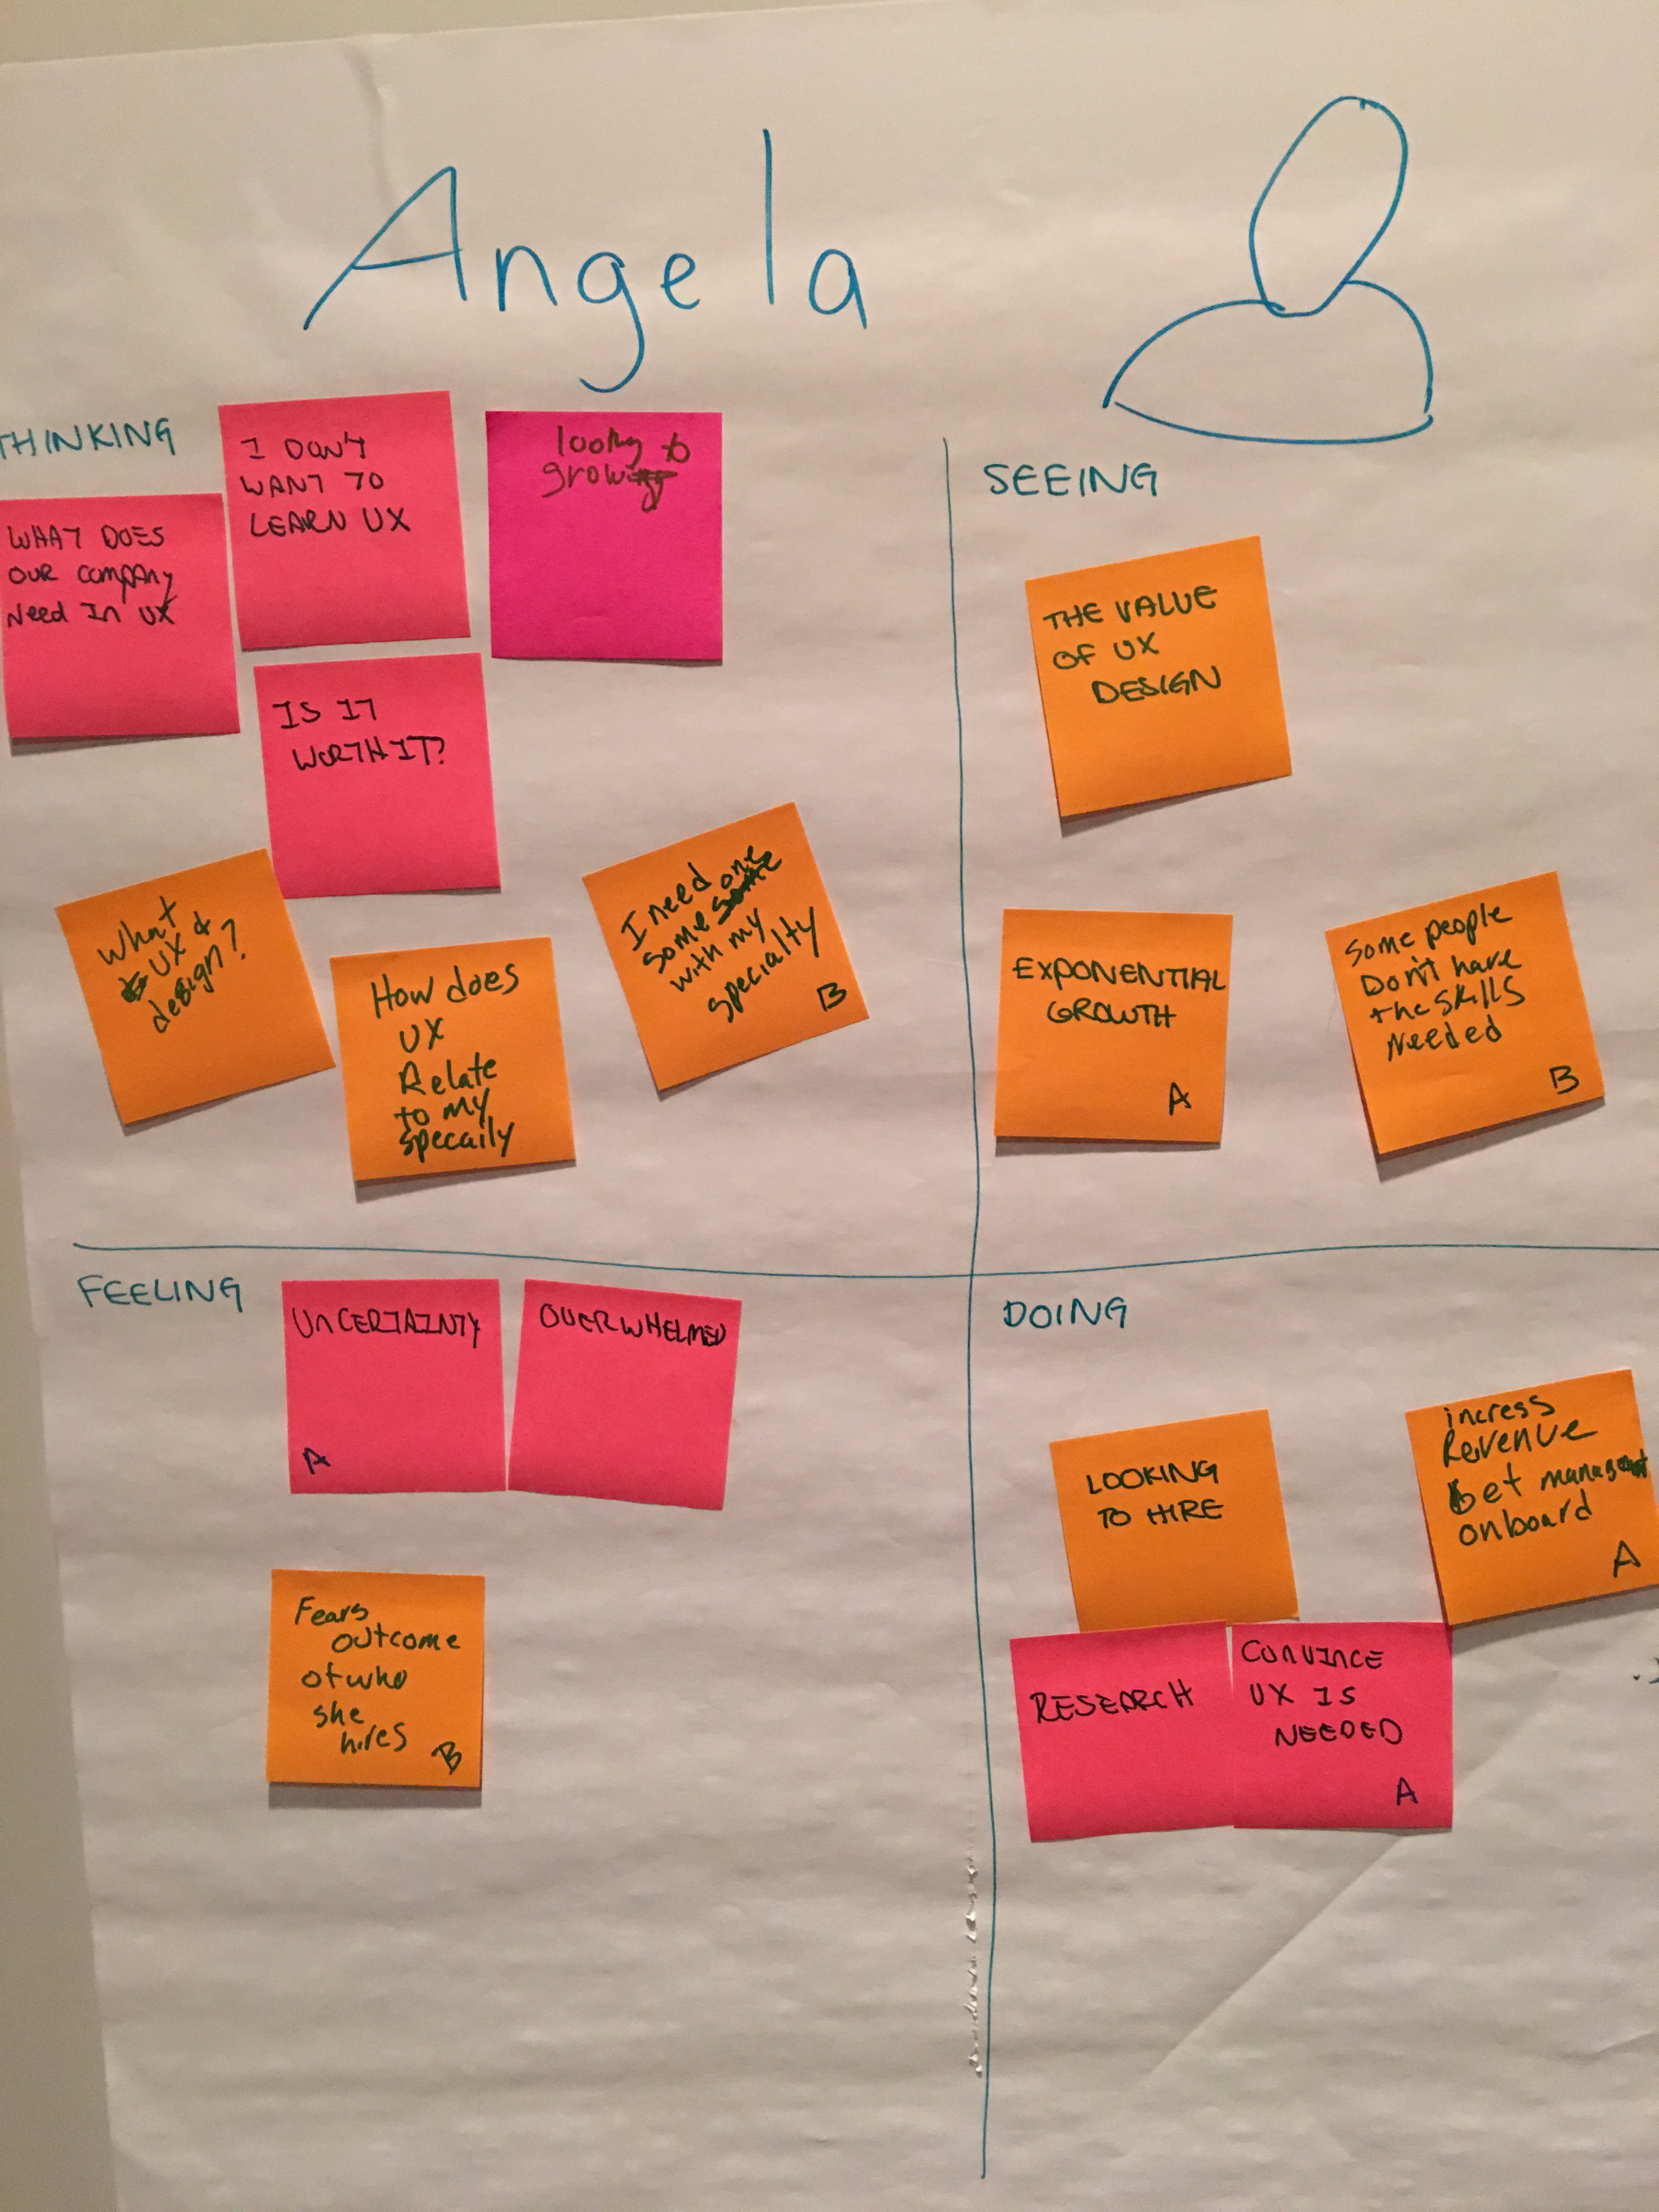 Angela
THINKING
I DON'T
WANT TO
LEARN UX
looking to
grow
WHAT DOES
OUR COMPANY
Need In UX
IS IT
WORTH IT?
What
UX &
design?
How does
UX
Relate
to my
specaily
I need one
some
with my
specialty
B
SEEING
THE VALUE
OF UX
DESIGN
EXPONENTIAL
GROWTH
A
Some people
Don't have
the skills
Needed
B
FEELING
UNCERTAINTY
A
OVERWHELMED
Fears
outcome
of who
she
hires
B
DOING
LOOKING
TO HIRE
incress
Revenue
get
onboard
A
RESEARCH
CONVINCE
UX IS
NEEDED
A